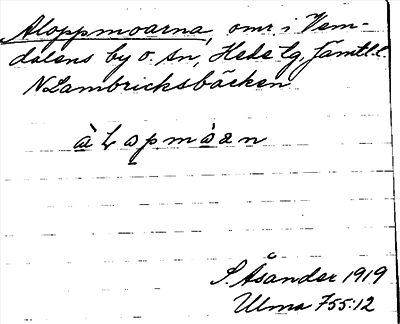 Aloppmoarna, omr. i Vem-
dalens by o. sn, Hede tg, Jämtl. l.
N Lambricksbäcken
àLopmòan
S. Åsander 1919
Ulma 755:12